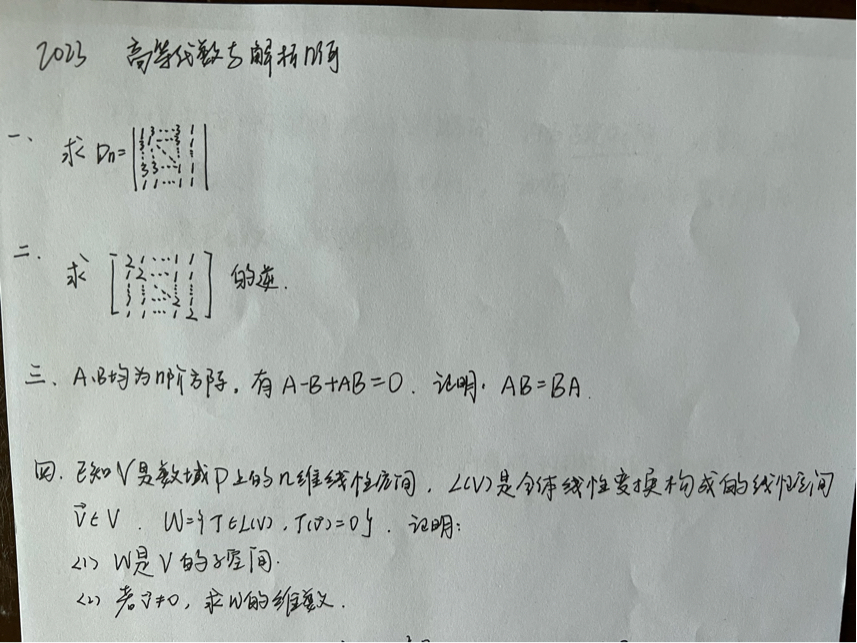 2023 高等代数与解析几何
一、求 Dn = | 1 3 ··· 3 1 |
| 3 1 ··· 3 1 |
| ⋮ ⋮ ⋱ ⋮ ⋮ |
| 3 3 ··· 1 1 |
| 1 1 ··· 1 1 |
二. 求 [ 2 1 ··· 1 1 ] 的逆.
[ 1 2 ··· 1 1 ]
[ ⋮ ⋮ ⋱ ⋮ ⋮ ]
[ 1 1 ··· 2 1 ]
[ 1 1 ··· 1 2 ]
三、A.B均为n阶方阵,有 A-B+AB=0. 证明. AB=BA.
四. 已知V是数域P上的n维线性空间, L(V)是全体线性变换构成的线性空间
v⃗∈V. W={T∈L(V), T(v⃗)=0}. 证明:
<1> W是V的子空间.
<2> 若v⃗≠0, 求W的维数.